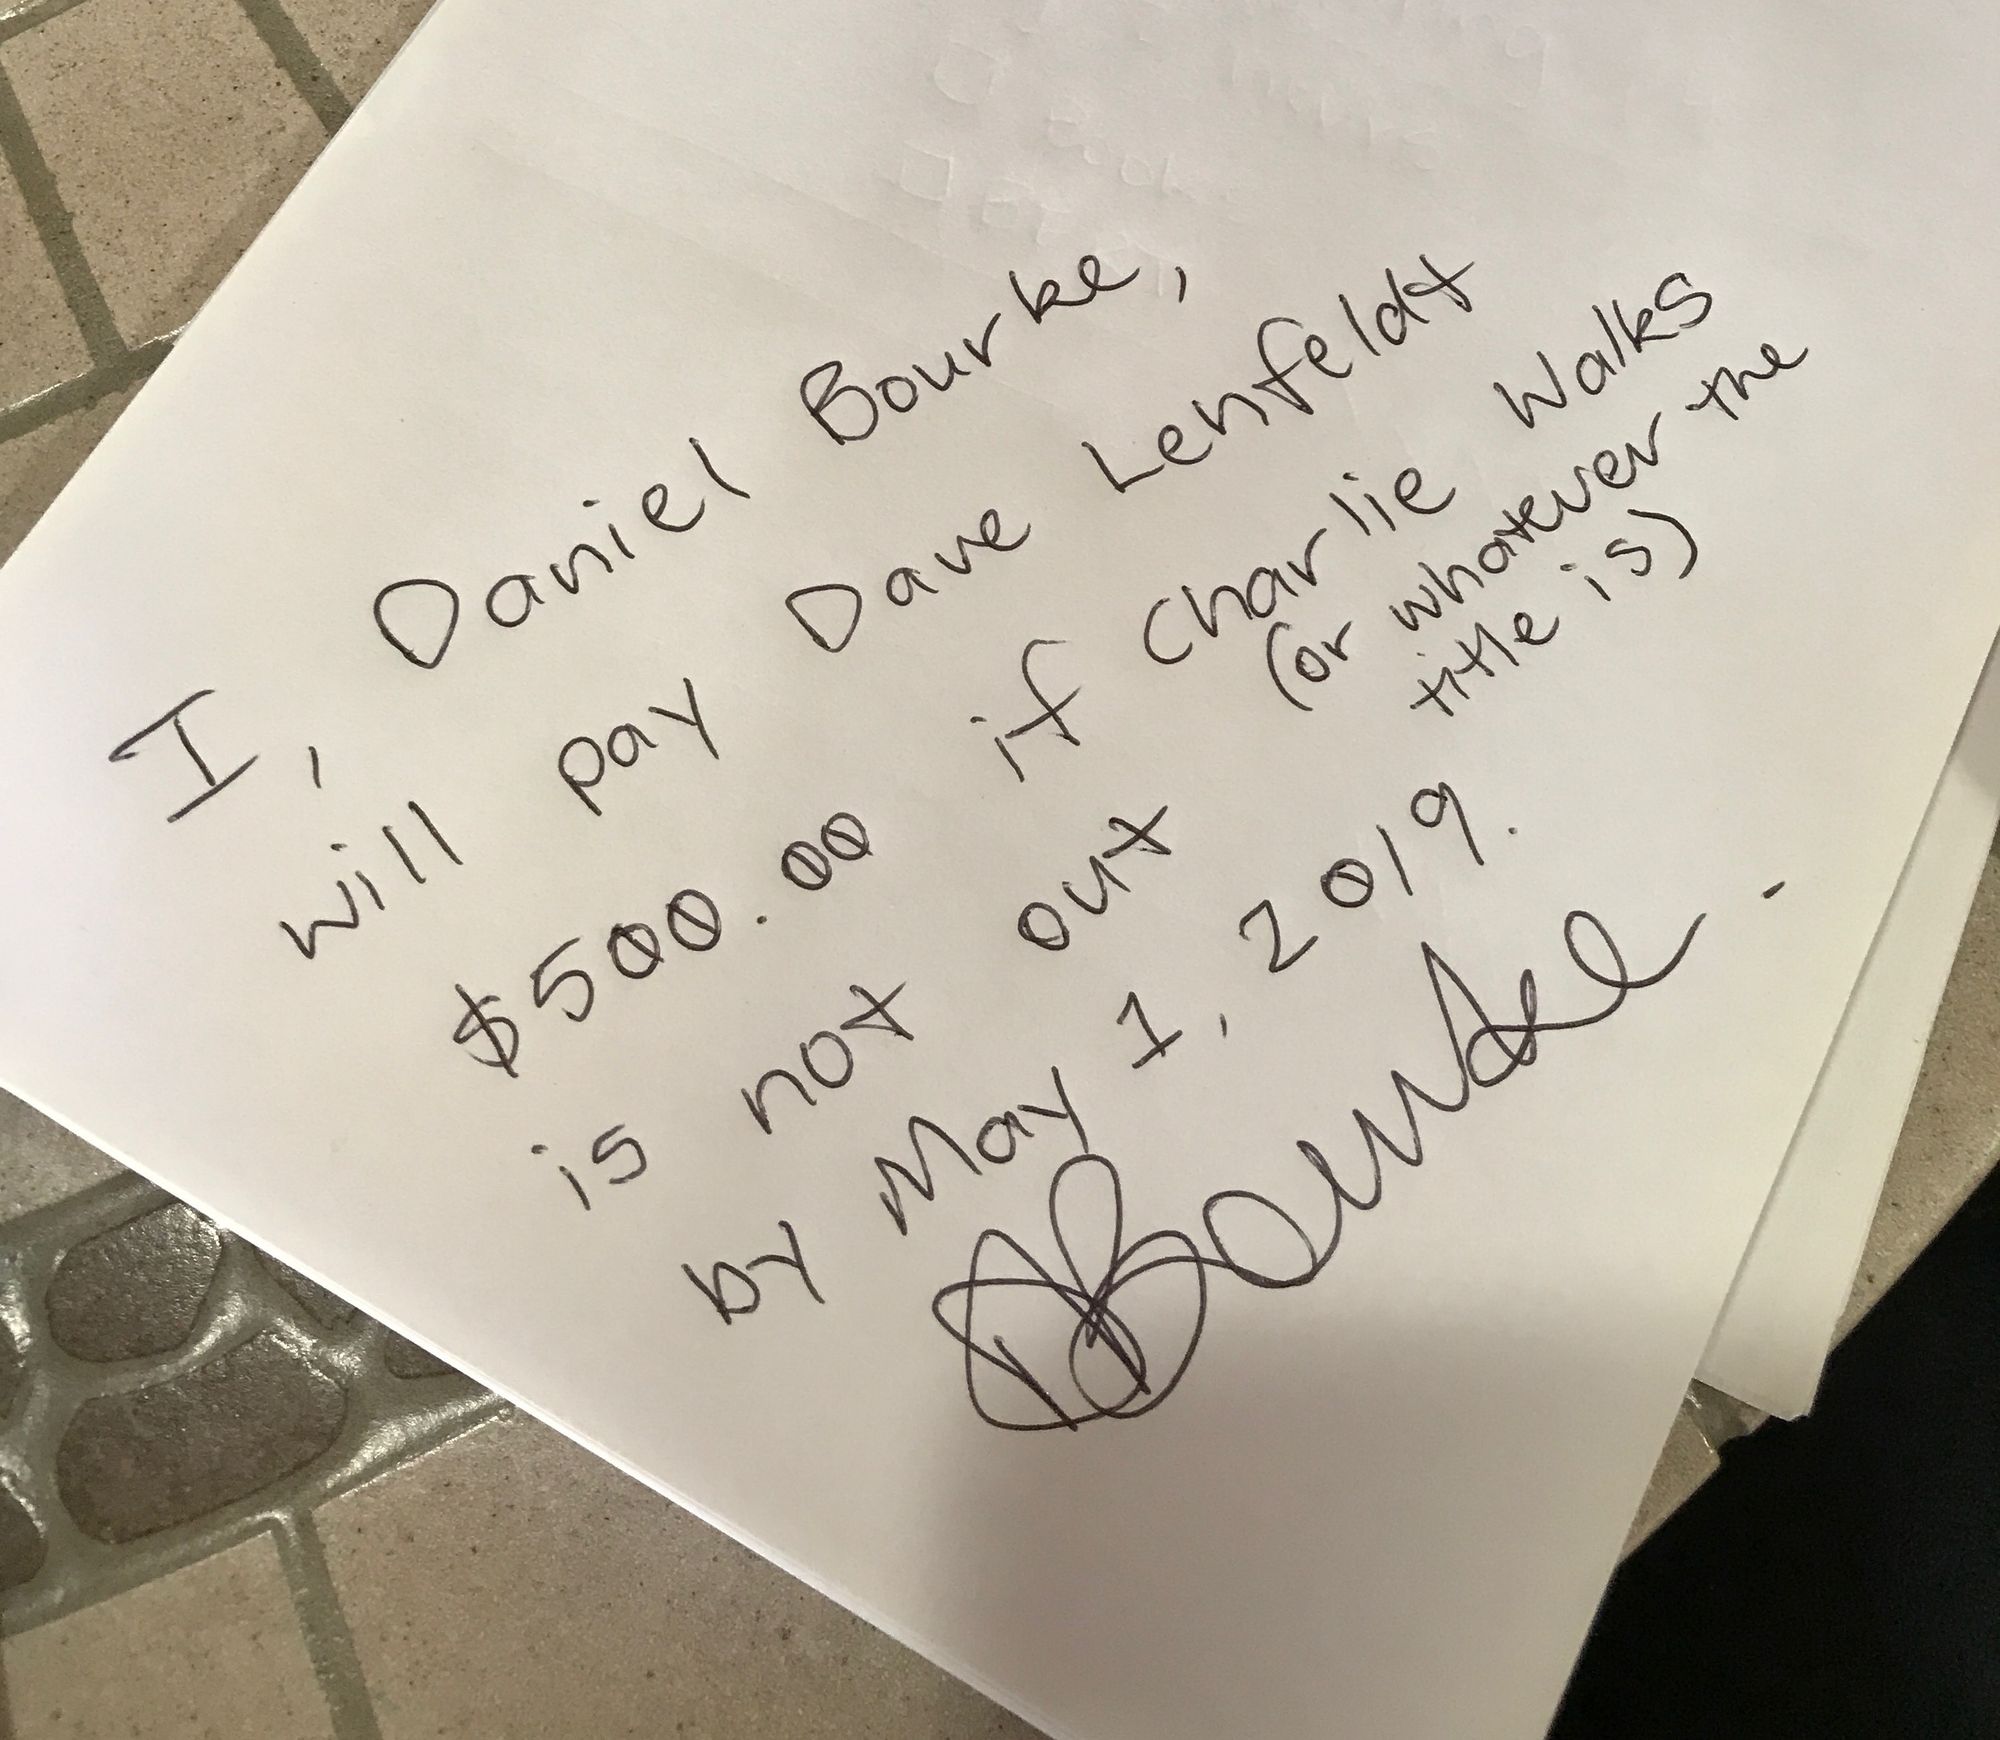 I, Daniel Bourke,
will pay Dave Lenfeldt
$500.00 if Charlie Walks
(or whatever the
title is)
is not out
by May 1, 2019.
DBourke